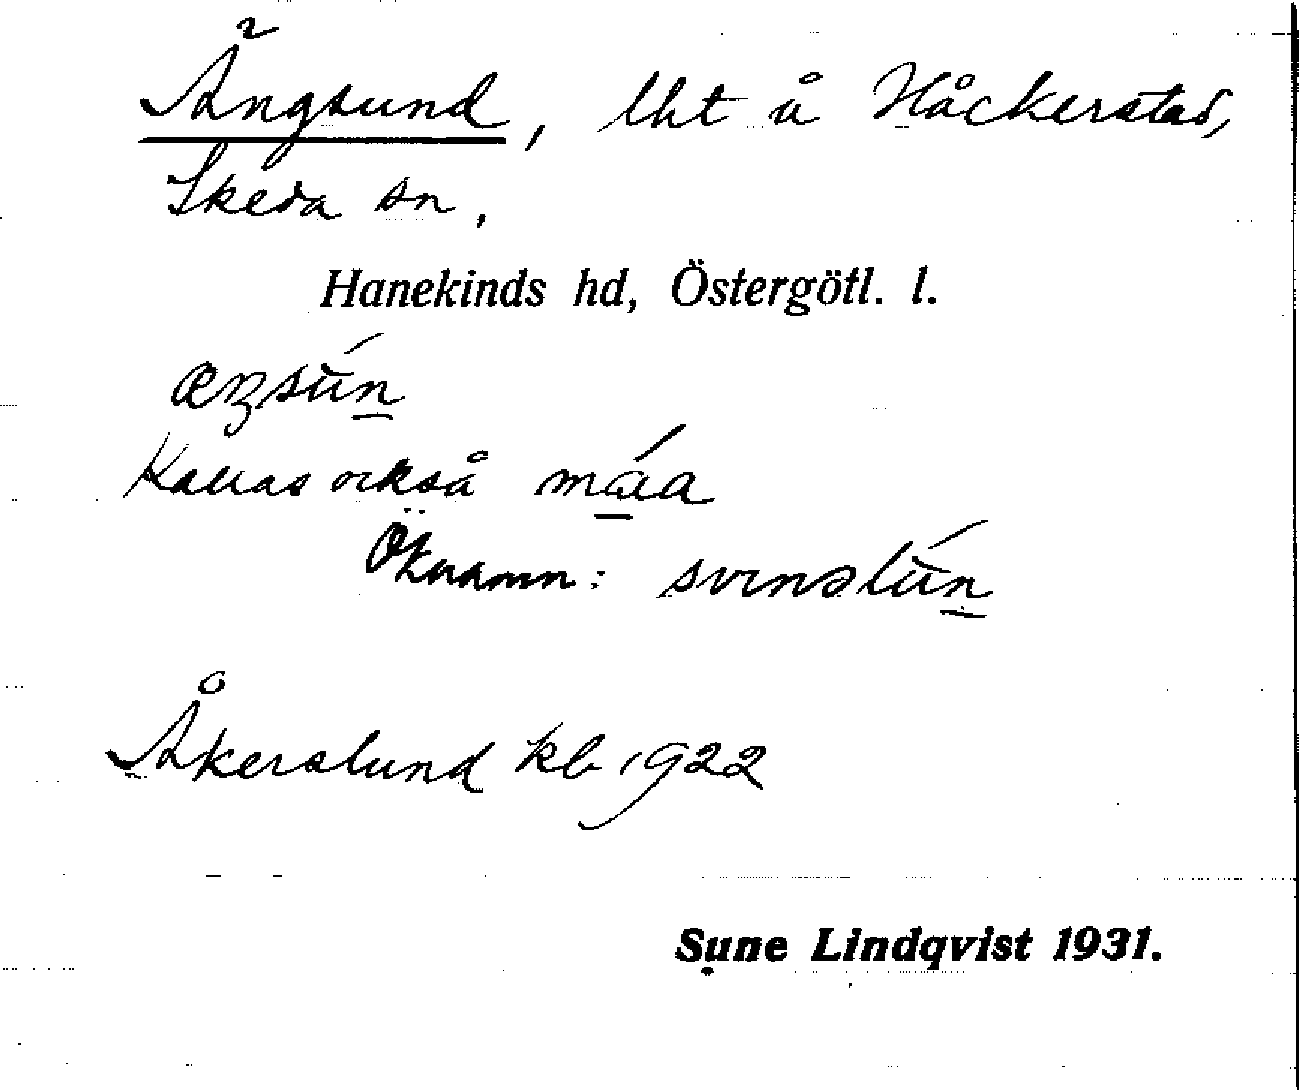 Ängsund, lht å Håckerstad,
Skeda sn,
Hanekinds hd, Östergötl. l.
æŋsún
Kallas också máa
Öknamn: svinslún
Åkerslund kb 1922
Sune Lindqvist 1931.